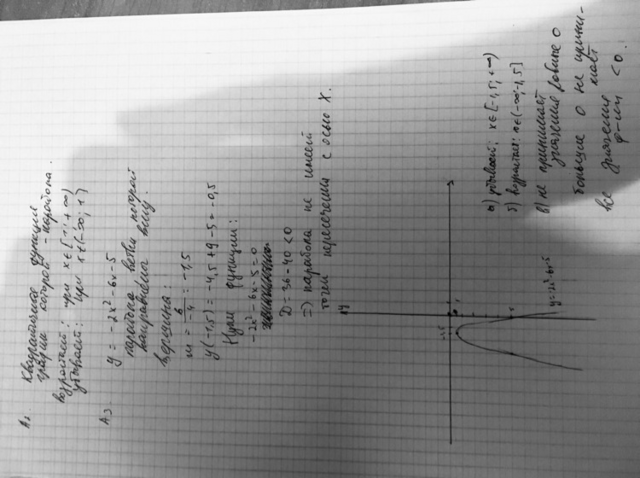 A1 Квадратичная функция
график которой - парабола.
возрастает: при x∈[-1; +∞)
убывает: при x∈(-∞; 1)
A3. y = -2x² - 6x - 5
парабола ветви которой
направлены вниз.
Вершина:
m = 6/-4 = -1,5
y(-1,5) = -4,5 + 9 - 5 = -0,5
Нули функции:
-2x² - 6x - 5 = 0
D = 36 - 40 < 0
=> парабола не имеет
точек пересечения с осью X.
y
y = -2x² - 6x - 5
а) убывает: x∈[-1,5; +∞)
б) возрастает: x∈(-∞; -1,5]
в) не принимает
значения равные 0
большие 0 не прини-
мает
все значения
ф-ции < 0.